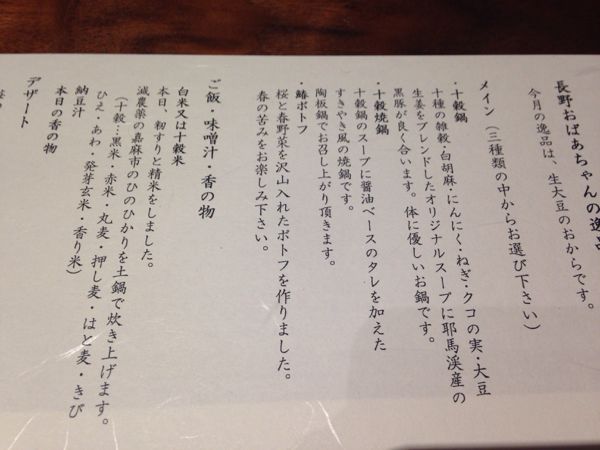 長野おばあちゃんの逸品
今月の逸品は、生大豆のおからです。
メイン（三種類の中からお選び下さい）
・十穀鍋
十種の雑穀・白胡麻・にんにく・ねぎ・クコの実・大豆
生姜をブレンドしたオリジナルスープに耶馬渓産の
黒豚が良く合います。体に優しいお鍋です。
・十穀焼鍋
十穀鍋のスープに醤油ベースのタレを加えた
すきやき風の焼鍋です。
陶板鍋でお召し上がり頂きます。
・鰆ポトフ
桜と春野菜を沢山入れたポトフを作りました。
春の苦みをお楽しみ下さい。
ご飯・味噌汁・香の物
白米又は十穀米
本日、籾すりと精米をしました。
減農薬の嘉麻市のひのひかりを土鍋で炊き上げます。
（十穀…黒米・赤米・丸麦・押し麦・はと麦・きび
ひえ・あわ・発芽玄米・香り米）
納豆汁
本日の香の物
デザート